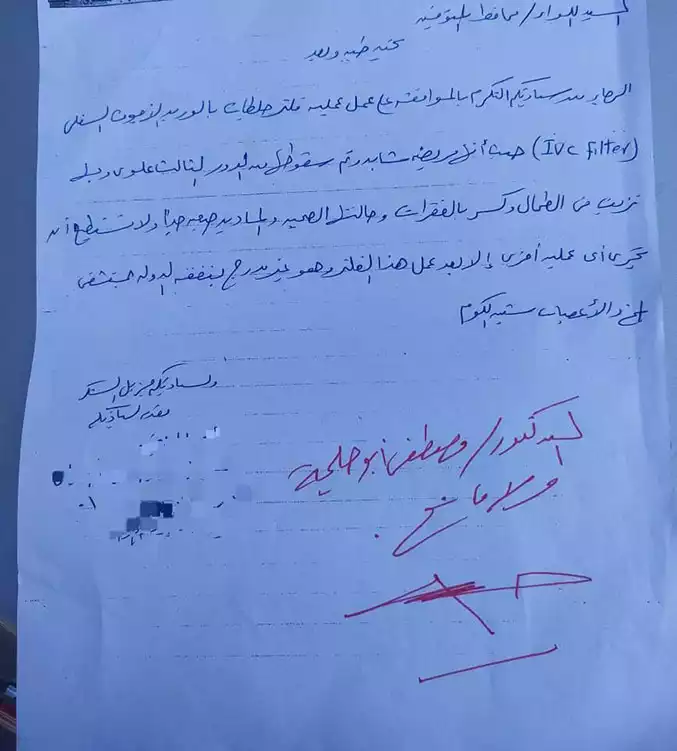 السيد اللواء / محافظ المنوفية
تحيه طيبه وبعد
الرجاء من سيادتكم التكرم بالموافقه على عمل عمليه فلتر جلطات بالوريد الاجوف السفلى
(IVC Filter) حيث أننى مريضه شابه وتم سقوطى من الدور الثالث علوى وبى
نزيف من الطحال وكسر بالفقرات وحالتى الصحيه والماديه صعبه جدا ولا تستطيع أن
تجرى أى عمليه أخرى إلا بعد عمل هذا الفلتر وهو غير مدرج بنفقه الدوله بمستشفى
المخ والأعصاب شبين الكوم
ولسيادتكم جزيل الشكر
مقدمه لسيادتكم
السيد الدكتور / مصطفى أبو حليمة
ولا مانع